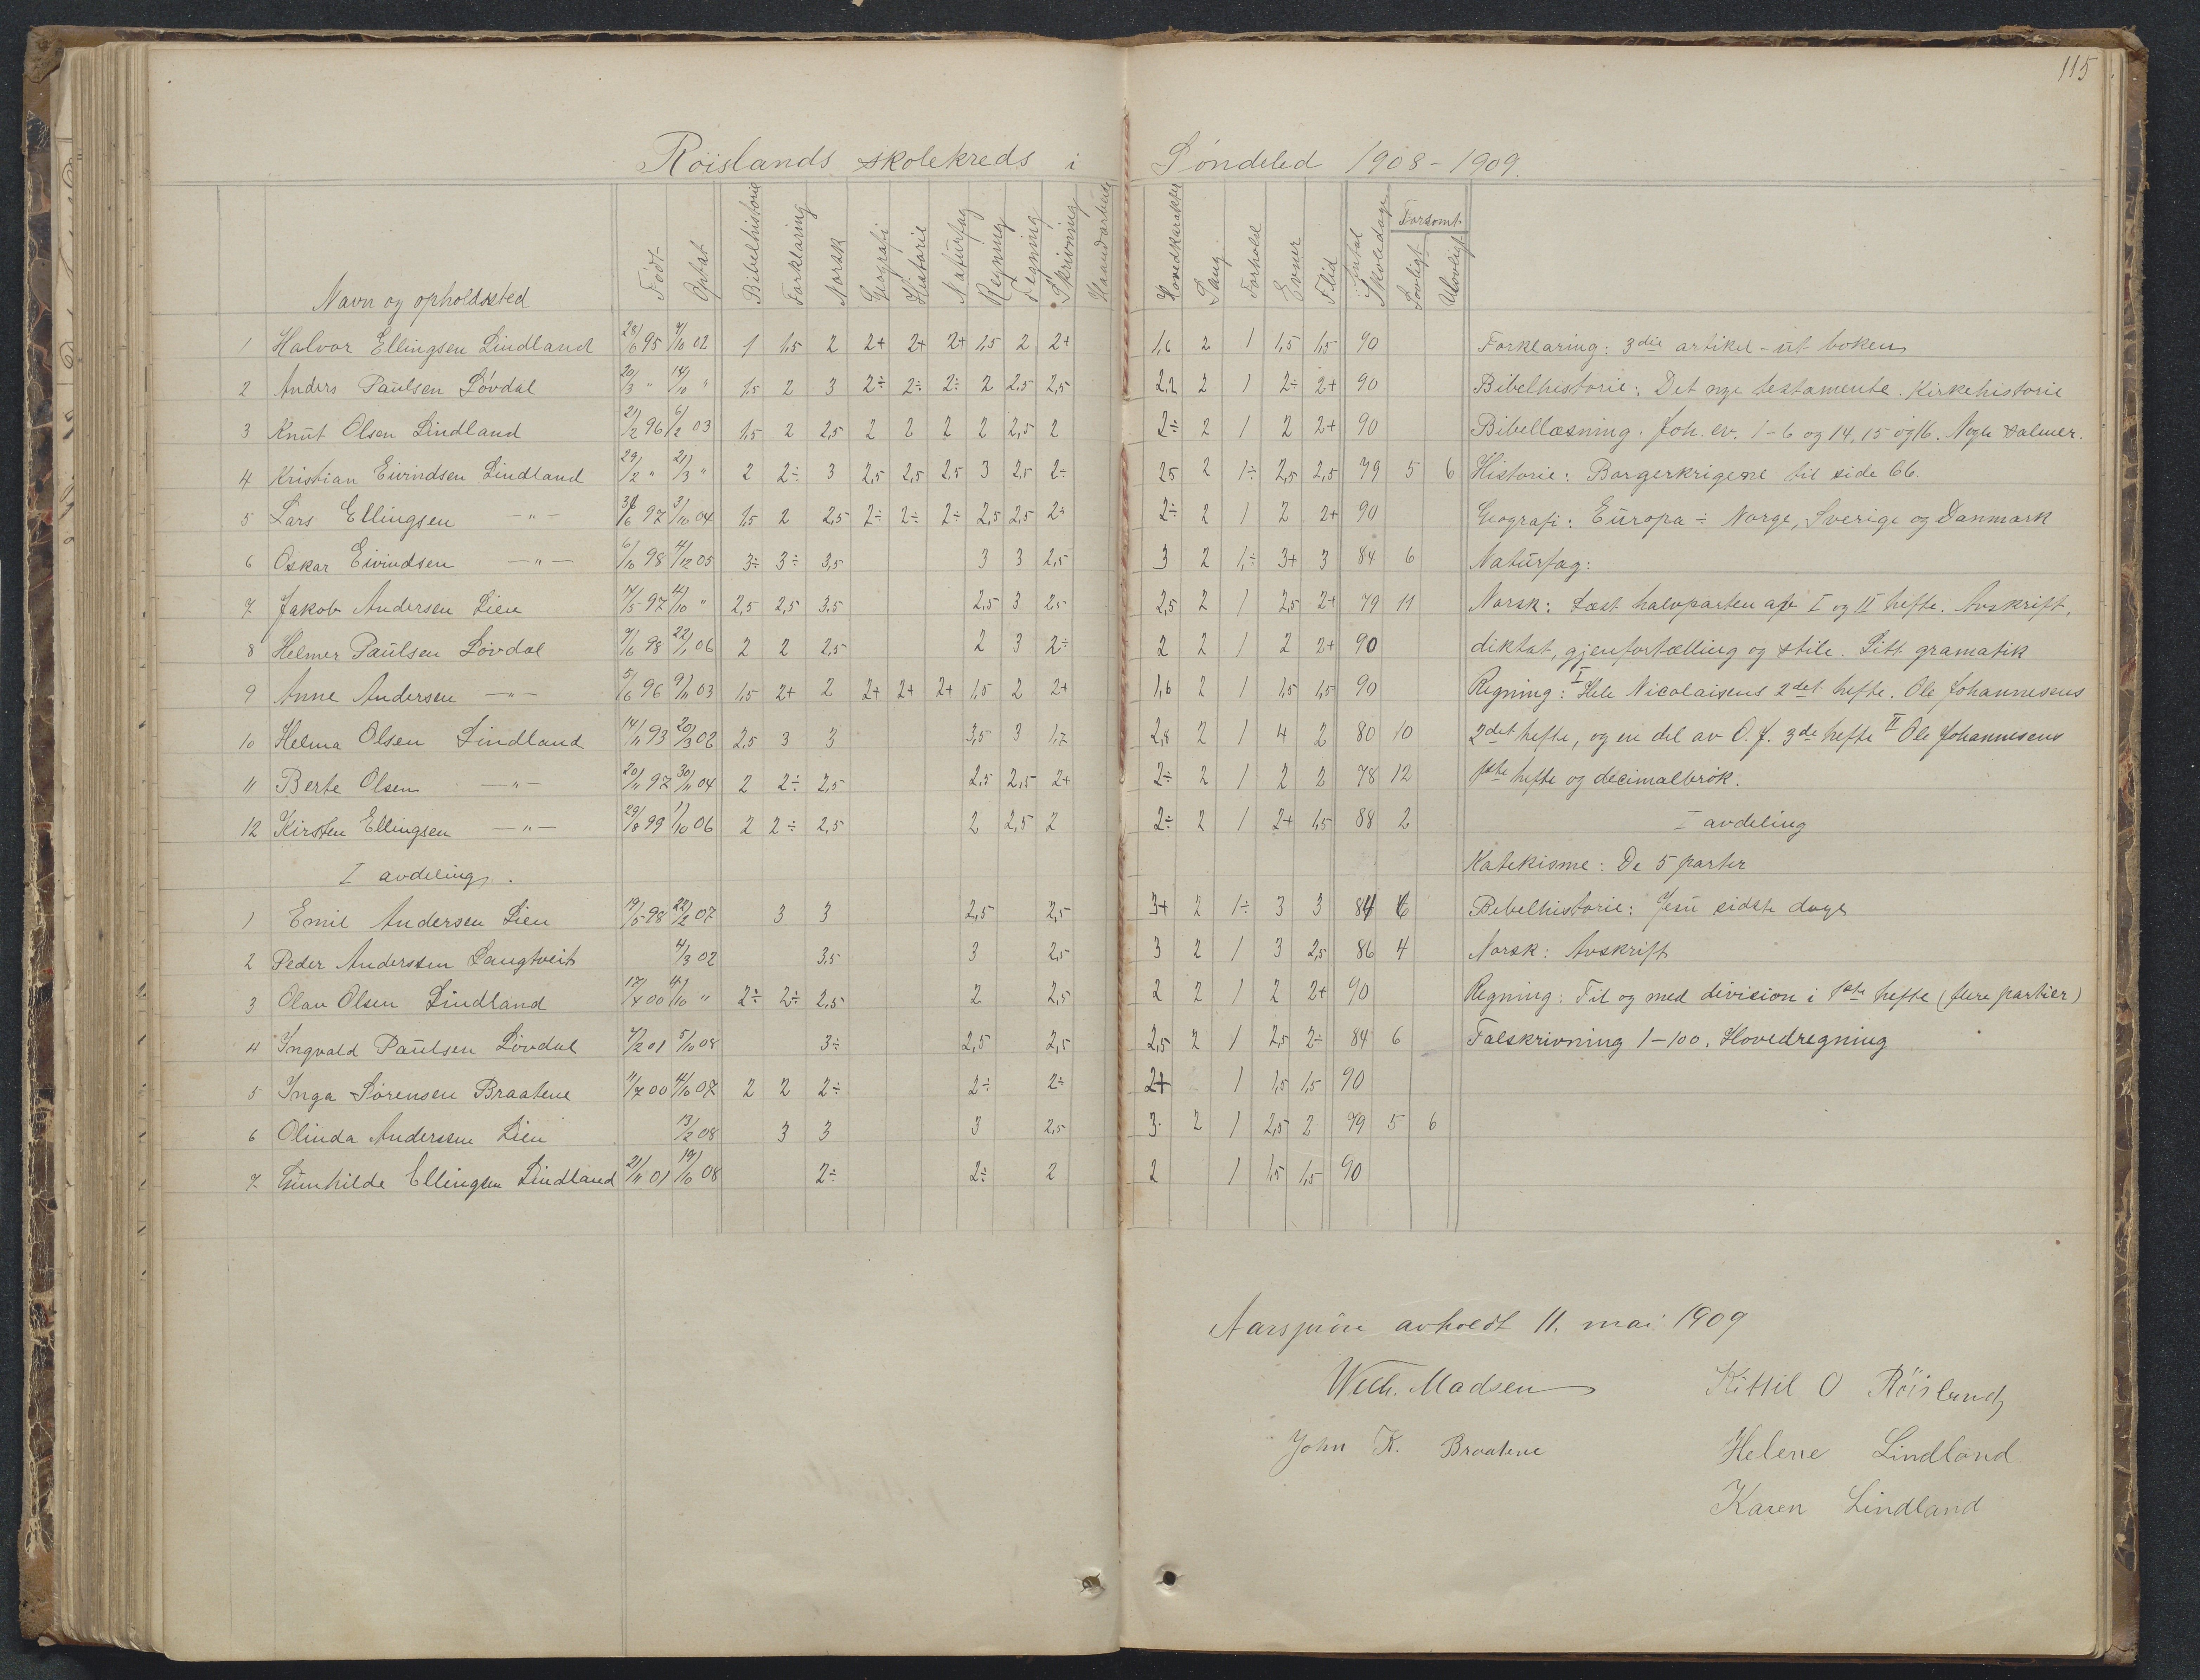 115
Röislands skolekreds i Söndeled 1908-1909.
Navn og opholdssted Født Optat Bibelhistorie Forklaring Norsk Geografi Historie Naturfag Regning Tegning Skrivning Haandarbeide Hovedkarakter Sang Forhold Evner Flid Antal Skoledage Forsømt Lovligt Ulovligt
1 Halvor Ellingsen Lindland 28/6 95 9/10 02 1 1,5 2 2+ 2+ 2+ 1,5 2 2+ 1,6 2 1 1,5 1,5 90 Forklaring: 3die artikel - ut boken
2 Anders Paulsen Lövdal 20/3 " 14/10 " 1,5 2 3 2÷ 2÷ 2÷ 2 2,5 2,5 2,2 2 1 2÷ 2+ 90 Bibelhistorie: Det nye testamente. Kirkehistorie
3 Knut Olsen Lindland 21/2 96 6/2 03 1,5 2 2,5 2 2 2 2 2,5 2 2÷ 2 1 2 2+ 90 Bibellæsning: Joh. ev. 1-6 og 14, 15 og 16. Nogle salmer.
4 Kristian Eivindsen Lindland 29/2 " 21/3 " 2 2÷ 3 2,5 2,5 2,5 3 2,5 2÷ 25 2 1÷ 2,5 2,5 79 5 6 Historie: Borgerkrigene til side 66.
5 Lars Ellingsen -"- 97 3/10 04 1,5 2 2,5 2÷ 2÷ 2÷ 2,5 2,5 2÷ 2÷ 2 1 2 2+ 90 Geografi: Europa ÷ Norge, Sverige og Danmark
6 Oskar Eivindsen -"- 6/10 98 4/12 05 3÷ 3÷ 3,5 3 3 2,5 3 2 1,÷ 3+ 3 84 6 Naturfag:
7 Jakob Andersen Lien 14/5 97 " 2,5 2,5 3,5 2,5 3 2,5 2,5 2 1 2,5 2+ 79 11 Norsk: Læst halvparten af I og II hefte. Avskrift,
8 Helmer Paulsen Lövdal 9/6 98 22/1 06 2 2 2,5 2 3 2÷ 2 2 1 2 2+ 90 diktat, gjenfortælling og stile. Litt gramatik
9 Anne Andersen -"- 5/6 96 9/11 03 1,5 2+ 2 2+ 2+ 2+ 1,5 2 2+ 1,6 2 1 1,5 1,5 90 Regning: I Hele Nicolaisens 2det hefte. Ole Johannesens
10 Helma Olsen Lindland 14/11 93 20/3 02 2,5 3 3 3,5 3 1,7 2,8 2 1 4 2 80 10 2det hefte, og en del av O. J. 3de hefte II Ole Johannesens
11 Berte Olsen -"- 20/11 97 30/11 04 2 2÷ 2,5 2,5 2,5 2+ 2÷ 2 1 2 2 78 12 1ste hefte og decimalbrök.
12 Kirsten Ellingsen -"- 29/8 99 1/10 06 2 2÷ 2,5 2 2,5 2 2÷ 2 1 2+ 1,5 88 2 I avdeling
I avdeling. Katekisme: De 5 parter
1 Emil Andersen Lien 19/5 98 22/2 07 3 3 2,5 2,5 3+ 2 1÷ 3 3 84 6 Bibelhistorie: Jesu sidste dage
2 Peder Anderssen Langtveit 4/3 02 3,5 3 2,5 3 2 1 3 2,5 86 4 Norsk: Avskrift
3 Olav Olsen Lindland 17/4 00 4/10 " 2÷ 2÷ 2,5 2 2,5 2 2 1 2 2+ 90 Regning: Til og med division i 1ste hefte (flere partier)
4 Ingvald Paulsen Lövdal 7/2 01 5/10 08 3÷ 2,5 2,5 2,5 2 1 2,5 2÷ 84 6 Talskrivning 1-100. Hovedregning
5 Inga Sörensen Braatene 11/7 00 4/10 07 2 2 2÷ 2÷ 2÷ 2+ 1 1,5 1,5 90
6 Olinda Anderssen Lien 13/2 08 3 3 3 2,5 3 2 1 2,5 2 79 5 6
7 Gunhilde Ellingsen Lindland 21/11 01 19/10 08 2÷ 2÷ 2 2 1 1,5 1,5 90
Aarsprøve avholdt 11. mai 1909
Wilh. Madsen Kittil O Röisland
John K. Braatene Helene Lindland
Karen Lindland